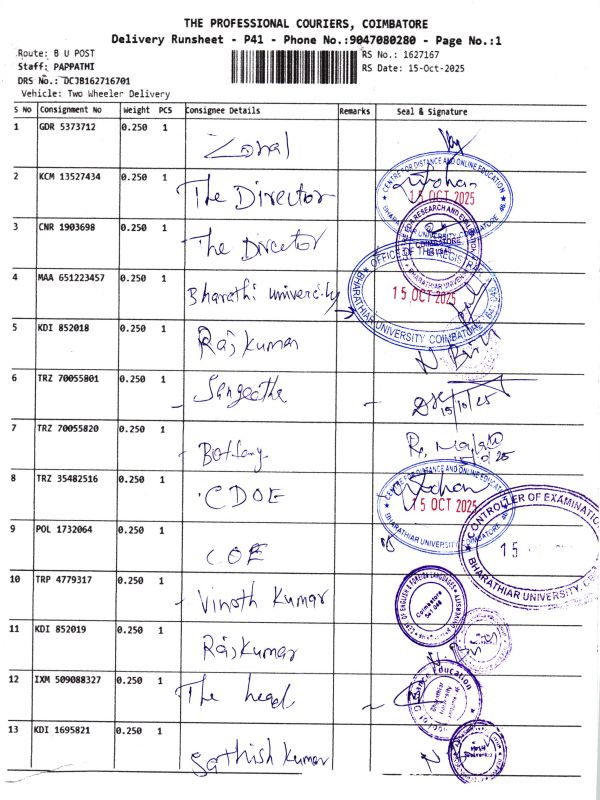 THE PROFESSIONAL COURIERS, COIMBATORE
Delivery Runsheet - P41 - Phone No.:9047080280 - Page No.:1
Route: B U POST
RS No.: 1627167
Staff: PAPPATHI
RS Date: 15-Oct-2025
DRS No.: DCJB162716701
Vehicle: Two Wheeler Delivery
S No Consignment No Weight PCS Consignee Details Remarks Seal & Signature
1 GDR 5373712 0.250 1 Zonal
2 KCM 13527434 0.250 1 The Director
CENTRE FOR DISTANCE AND ONLINE EDUCATION
15 OCT 2025
BHARATHIAR UNIVERSITY, COIMBATORE
3 CNR 1903698 0.250 1 The Dircetor
COIMBATORE
BHARATHIAR UNIVERSITY
4 MAA 651223457 0.250 1 Bharathi univercity
OFFICE OF THE REGISTRAR
15 OCT 2025
BHARATHIAR UNIVERSITY COIMBATORE
5 KDI 852018 0.250 1 Rajkumar
6 TRZ 70055801 0.250 1 Sangeetha 15/10/25
7 TRZ 70055820 0.250 1 Botany
8 TRZ 35482516 0.250 1 CDOE
CENTRE FOR DISTANCE AND ONLINE EDUCATION
15 OCT 2025
BHARATHIAR UNIVERSITY
9 POL 1732064 0.250 1 COE
CONTROLLER OF EXAMINATIONS
15
BHARATHIAR UNIVERSITY,
10 TRP 4779317 0.250 1 Vinoth Kumar
OF ENGLISH & FOREIGN LANGUAGES
Coimbatore
641 046
11 KDI 852019 0.250 1 Rajkumar
12 IXM 509088327 0.250 1 The head
Education
Bharathiar
University
13 KDI 1695821 0.250 1 Sathish Kumar